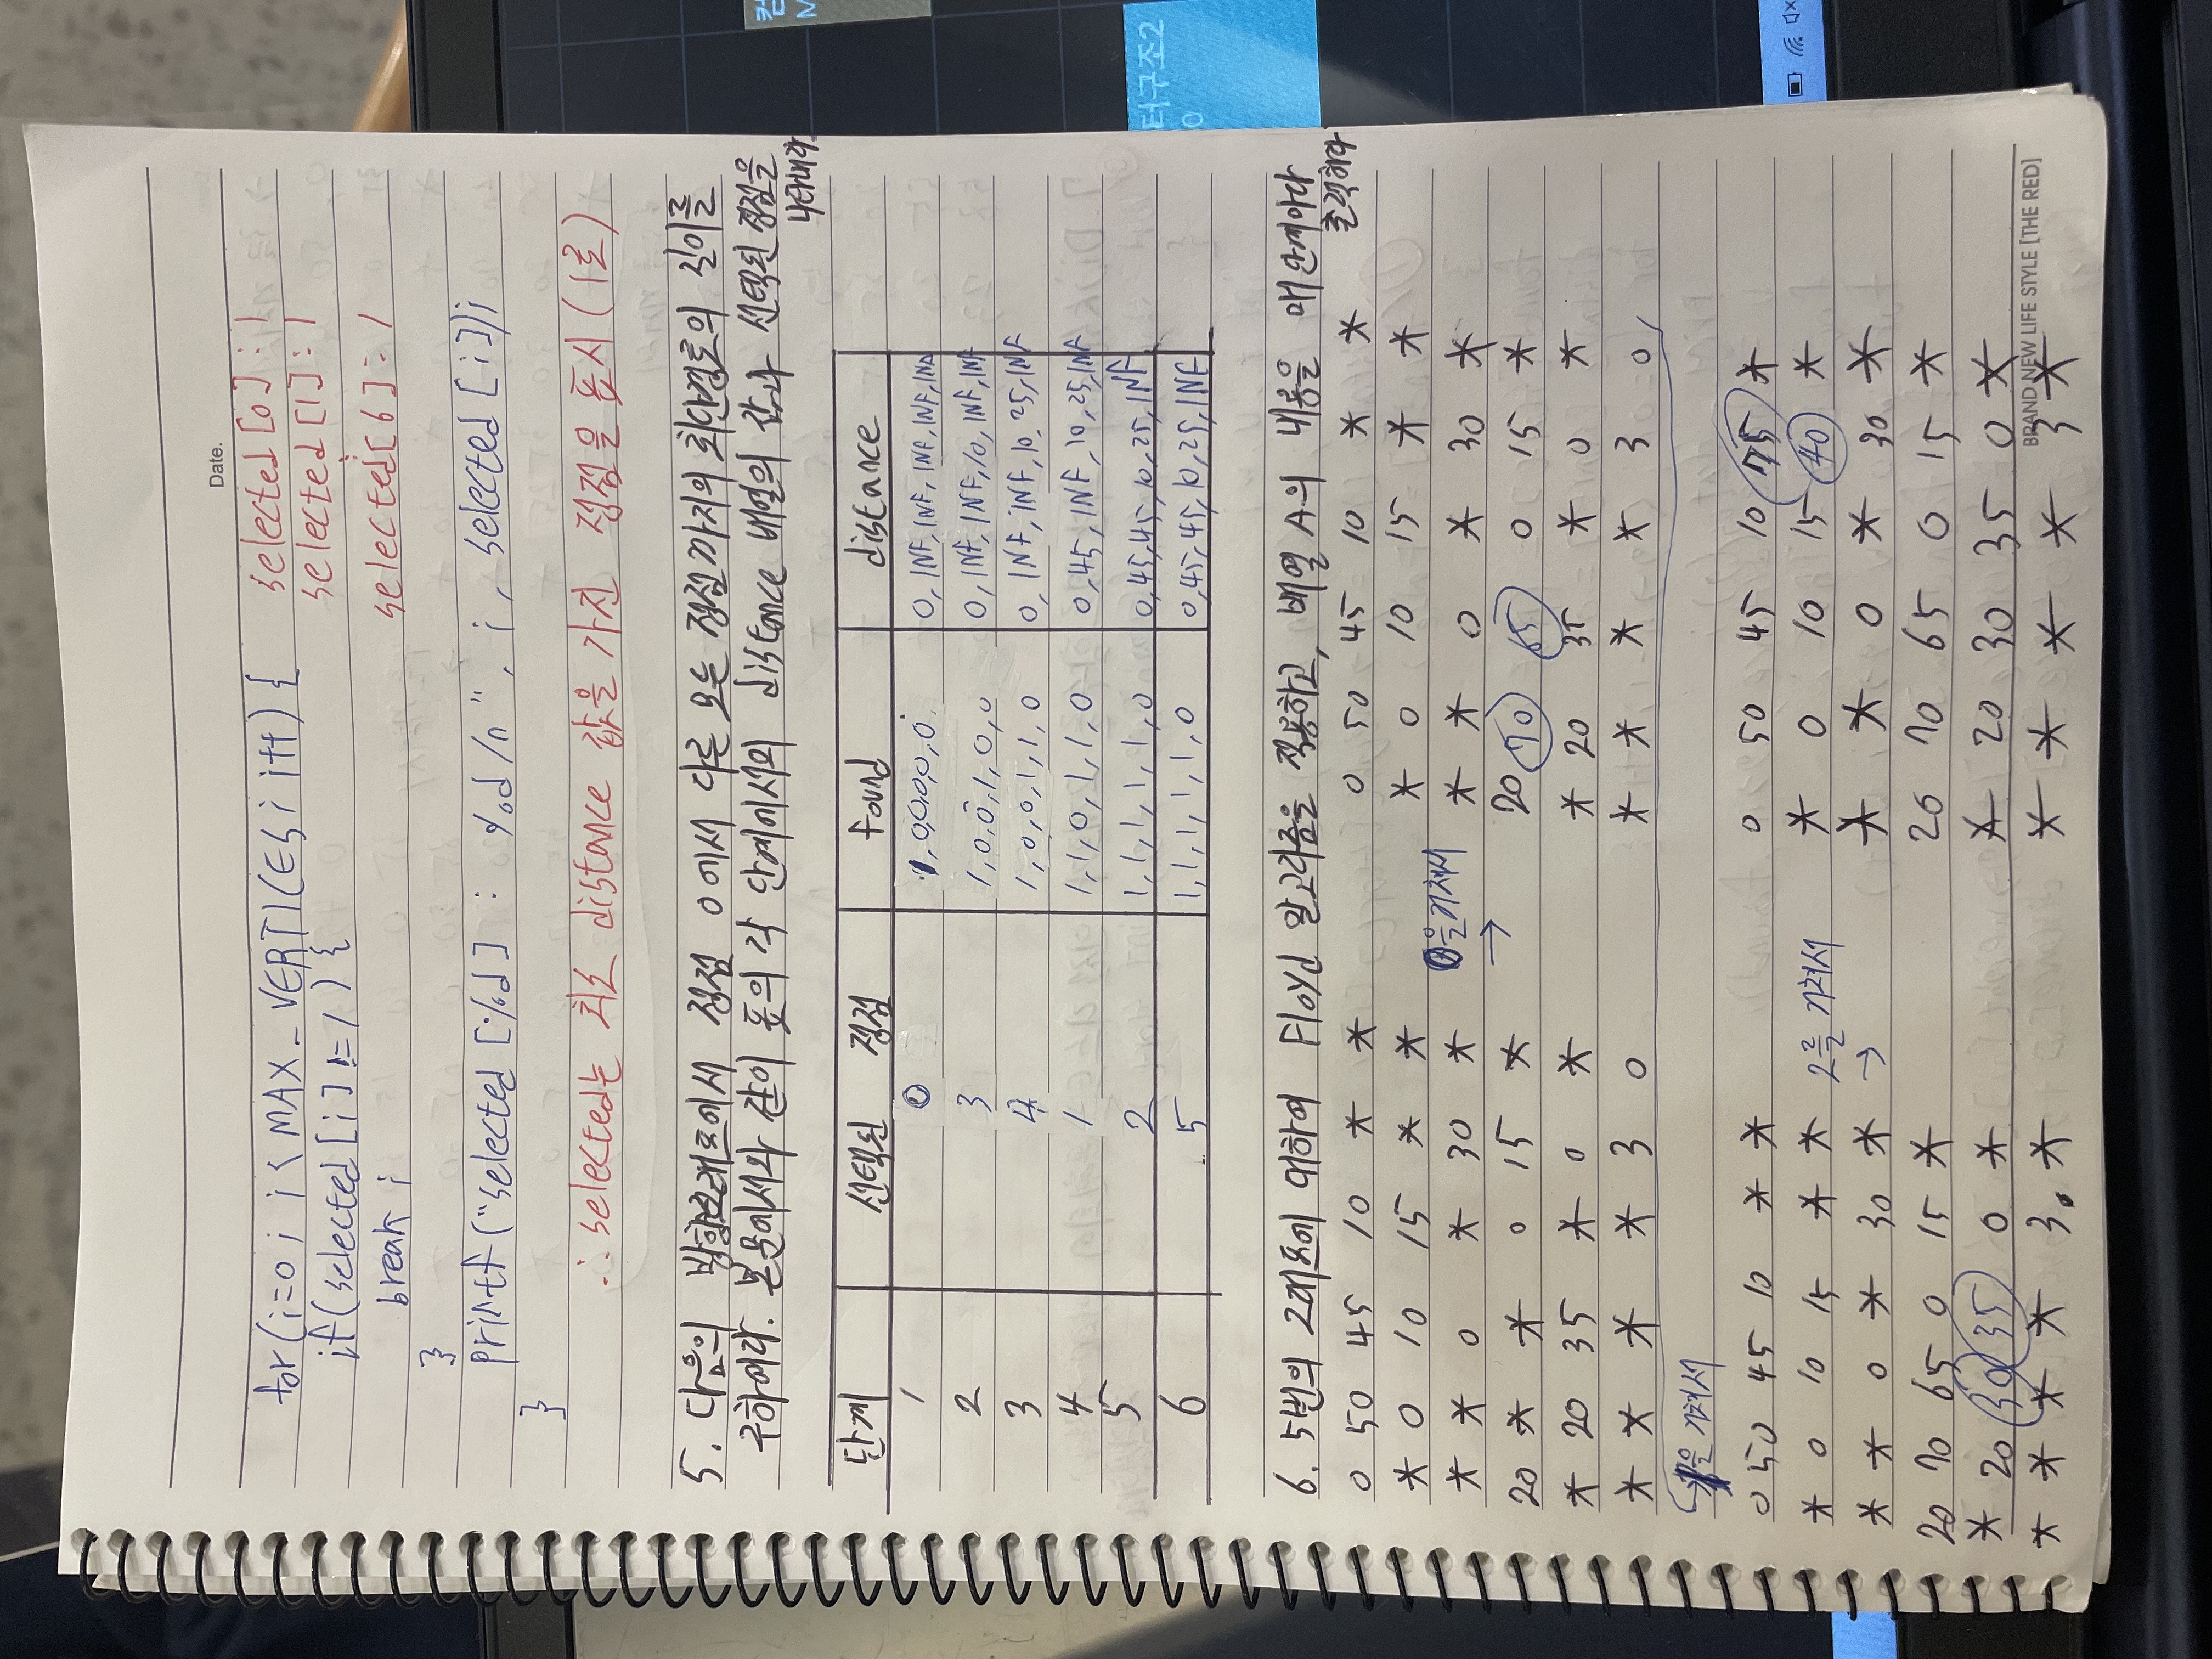 Date.
for(i=0; i < MAX_VERTICES; i++) { selected[0] : 1
if(selected[i] != 1) { selected[1] : 1
⋮
break; selected[6] : 1
}
printf("selected[%d] : %d/n", i, selected[i]);
}
∴ selected는 최소 distance 값을 가진 정점을 표시 (1로)
5. 다음의 방향그래프에서 정점 0에서 다른 모든 정점까지의 최단경로의 길이를
구하여라. 본문에서와 같이 표의 각 단계에서의 distance 배열의 값과 선택된 정점을
나타내라
단계 선택된 정점 found distance
1 0 1,0,0,0,0,0 0, INF, INF, INF, INF, INF
2 3 1,0,0,1,0,0 0, INF, INF, 10, INF, INF
3 4 1,0,0,1,1,0 0, INF, INF, 10, 25, INF
4 1 1,1,0,1,1,0 0,45, INF, 10, 25, INF
5 2 1,1,1,1,1,0 0,45,45,10,25,INF
6 5 1,1,1,1,1,0 0,45,45,10,25,INF
6. 5번의 그래프에 대하여 Floyd 알고리즘을 적용하고, 배열 A의 내용을 매 단계마다
출력하라
0 50 45 10 * * 0 50 45 10 * *
* 0 10 15 * * * 0 10 15 * *
* * 0 * 30 * 0을 거쳐서 * * 0 * 30 *
→
20 * * 0 15 * 20 70 65 0 15 *
* 20 35 * 0 * * 20 35 * 0 *
* * * * 3 0 * * * * 3 0
1을 거쳐서
0 50 45 10 * * 0 50 45 10 75 *
* 0 10 15 * * 2를 거쳐서 * 0 10 15 40 *
* * 0 * 30 * → * * 0 * 30 *
20 70 65 0 15 * 20 70 65 0 15 *
* 20 30 35 0 * * 20 30 35 0 *
BRAND NEW LIFE STYLE [THE RED]
* * * * 3 * * * * * 3 *
컴
M
터구조2
0